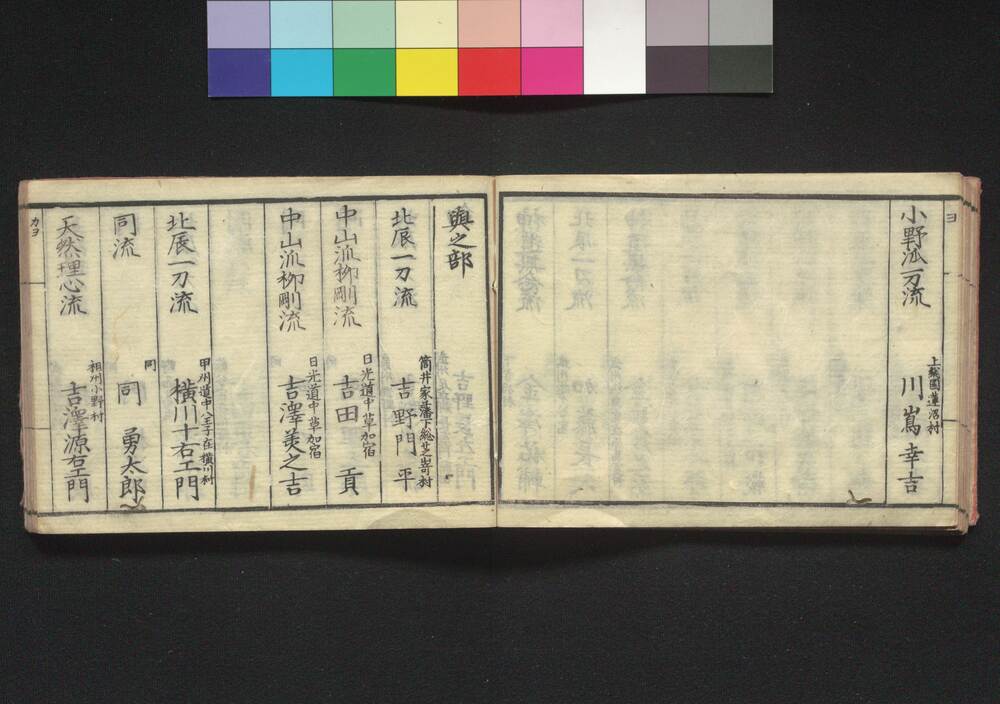 ヨ
小野派一刀流
上総国蓮沼村
川嶌幸吉
與之部
北辰一刀流
筒井家藩下総芝嵜村
吉野門平
中山流柳剛流
日光道中草加宿
吉田貢
中山流柳剛流
日光道中草加宿
吉澤美之吉
北辰一刀流
甲州道中八王子在横川村
横川十右エ門
同流
同
同勇太郎
天然理心流
相州小野村
吉澤源右エ門
カヨ